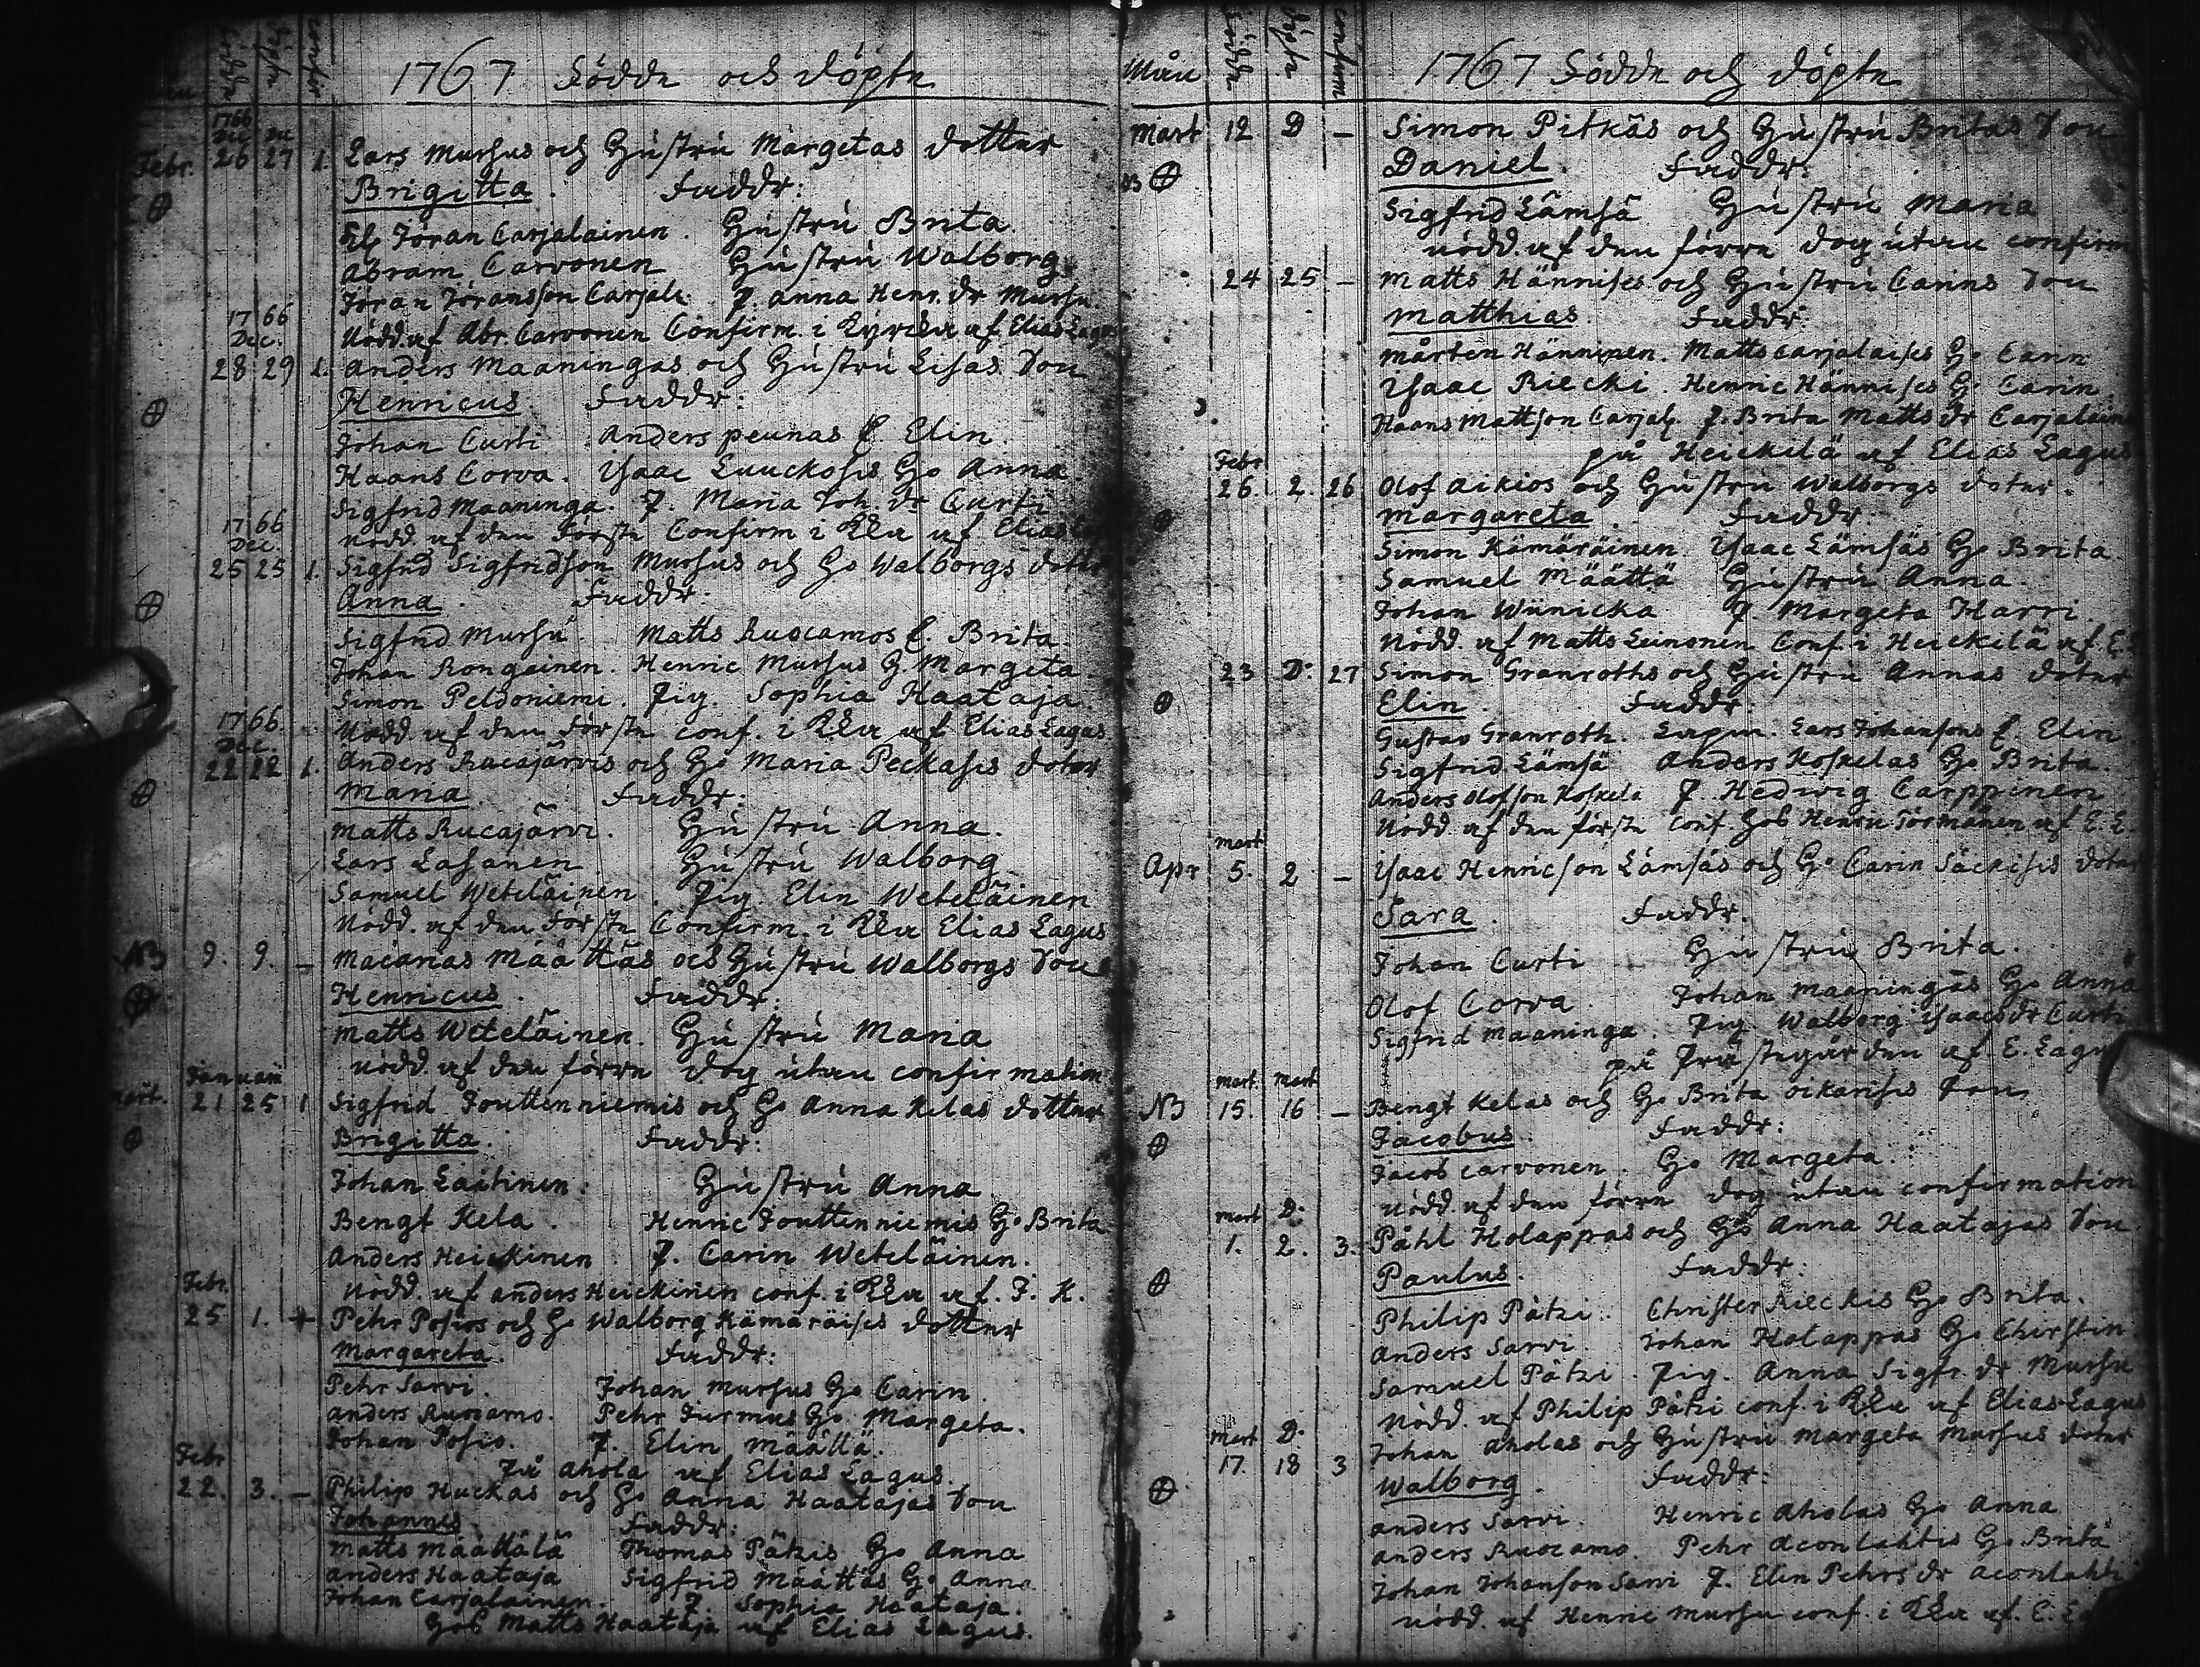 1767 Födde och döpte
1766
Dec Dec
Febr. 26 27 1. Lars Mursus och Hustru Margetas dotter
Brigitta. Faddr:
Jöran Carjalainen. Hustru Brita
Abram Carvonen Hustru Walborg
Jöran Jöransson Carjal: P. Anna Henr. dr Mursu.
Nödd. af Abr. Carvonen Confirm. i Kyrcka af Elias Lagus
1766
Dec.
28 29 1. Anders Maaningas och Hustru Lisas Son
Henricus Faddr:
Johan Curti Anders peunas E. Elin.
Haans Corva. Isaac Luuckosis Ho Anna
Sigfrid Maaninga. P. Maria Joh. dr Curti
Nödd. af den Förste Confirm i Kka af Elias
1766
Dec.
25 25 1. Sigfrid Sigfridson Mursus och Ho Walborgs doter
Anna. Faddr.
Sigfrid Mursu. Matts Ruocamos E. Brita
Johan Rongainen. Henric Mursus H. Margeta
Simon Peldoniemi. Pig. Sophia Haataja.
Nödd. af den Förste conf. i Kka af Elias Lagus
1766.
Dec.
22 22 1. Anders Rucajärvis och Ho Maria Peckasis doter
Maria Faddr:
Matts Rucajärvi. Hustru Anna.
Lars Lasanen Hustru Walborg
Samuel Weteläinen. Pig. Elin Weteläinen
Nödd. af den Förste Confirm. i Kka Elias Lagus
NB 9. 9. – Macarias Määttäs och Hustru Walborgs Son
Henricus. Faddr:
Matts Weteläinen. Hustru Maria
Nödd. af den förre dog utan confirmation
Januarii
Mart. 21 25 1 Sigfrid Jouttenniemis och Ho Anna Kelas dotter
Brigitta. Faddr:
Johan Laitinen. Hustru Anna
Bengt Kela. Henric Jouttenniemis Ho Brita
Anders Heickinen P. Carin Weteläinen.
Febr. Nödd. af anders Heickinen conf. i Kka af. J. K.
25 1. + Pehr Posios och Ho Walborg Kämäräises dotter
Margareta. Faddr:
Pehr Sarvi. Johan Mursus Ho Carin
Anders Ruocamo. Pehr Jurmus Ho Margeta.
Johan Posio. P. Elin Määttä.
På Ahola af Elias Lagus.
Febr
22. 3. – Philip Huckas och Ho Anna Haatajas Son
Johannes Faddr:
Matts Määttälä Thomas Pätzis Ho Anna
Anders Haataja Sigfrid Määttäs Ho Anna
Johan Carjalainen. P. Sophia Haataja.
Hos Matts Haataja af Elias Lagus.
Mån Födde döpte confirm
1767 Födde och döpte
Mart 12 D – Simon Pitkäs och Hustru Britas Son
Daniel. Faddr:
Sigfrid Lämsä Hustru Maria
Nödd. af den förre dog utan confirm
24 25 – Matts Hännises och Hustru Carins Son
Matthias. Faddr:
Mårten Hänninen. Matts Carjalaises Ho Carin
Isaac Riecki. Henric Hännises Ho Carin
Haans Mattson Carjal: P. Brita Matts dr Carjalain
på Heickilä af Elias Lagus
Febr
26. 2. 26 Olof Aikios och Hustru Walborgs doter.
Margareta. Faddr.
Simon Kämäräinen. Isaac Lämsäs Ho Brita.
Samuel Määttä Hustru Anna.
Johan Wünicka P. Margeta Harri.
Nödd. af Matts Leinonen Conf. i Heickilä af E.
23 D. 27 Simon Granroths och Hustru Annas doter
Elin. Faddr.
Gustav Granroth. Lars Johansons E. Elin
Sigfrid Lämsä Anders Koskelas Ho Brita.
Anders Olofson Koskela P. Hedwig Carppinen
Nödd. af den förste conf. hos Henric Törmänen af E. L.
Mart
Apr 5. 2 – Isaac Henricson Lämsäs och Ho Carin Säckisis doter
Sara. Faddr.
Johan Curti Hustru Brita.
Olof Corva. Johan Maaningas Ho Anna
Sigfrid Maaninga. Pig. Walborg Isaacsdr Curti
på Prästegården af E. Lagus
Mart. Mart
NB 15. 16 – Bengt Kelas och Ho Brita Oikarises Son
Jacobus. Faddr:
Jacob Carvonen. Ho Margeta.
Nödd. af den förre dog utan confirmation
Mart D.
1. 2. 3. Påhl Holappas och Ho Anna Haatajas Son
Paulus. Faddr:
Philip Pätzi. Christer Rieckis Ho Brita.
Anders Sarvi. Johan Holappas Ho Chirstin
Samuel Pätzi. Pig. Anna Sigfr. dr Mursu
Nödd. af Philip Pätzi conf. i Kka af Elias Lagus
Mart D.
17. 18 3 Johan Aholas och Hustru Margeta Mursus doter
Walborg. Faddr:
Anders Sarvi. Henric Aholas Ho Anna
Anders Ruocamo. Pehr Aconlahtis Ho Brita
Johan Johanson Sarvi P. Elin Pehrs dr Aconlahti
Nödd. af Henric Mursu conf. i Kka af. E.